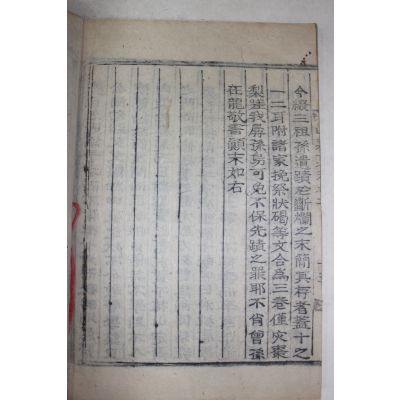 今綴三祖孫遺蹟於斷爛之末簡其存者蓋十之
一二耳附諸家挽祭狀碣等文合爲三卷僅灾棗
梨雖我孱孫易可免不保先蹟之罪耶不肖曾孫
在龍敬書顚末如右